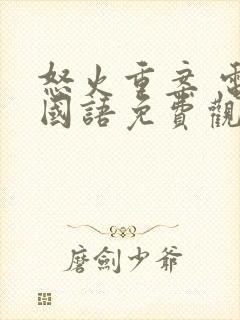 怒火重案 電
國語免費觀
磨劍少爺